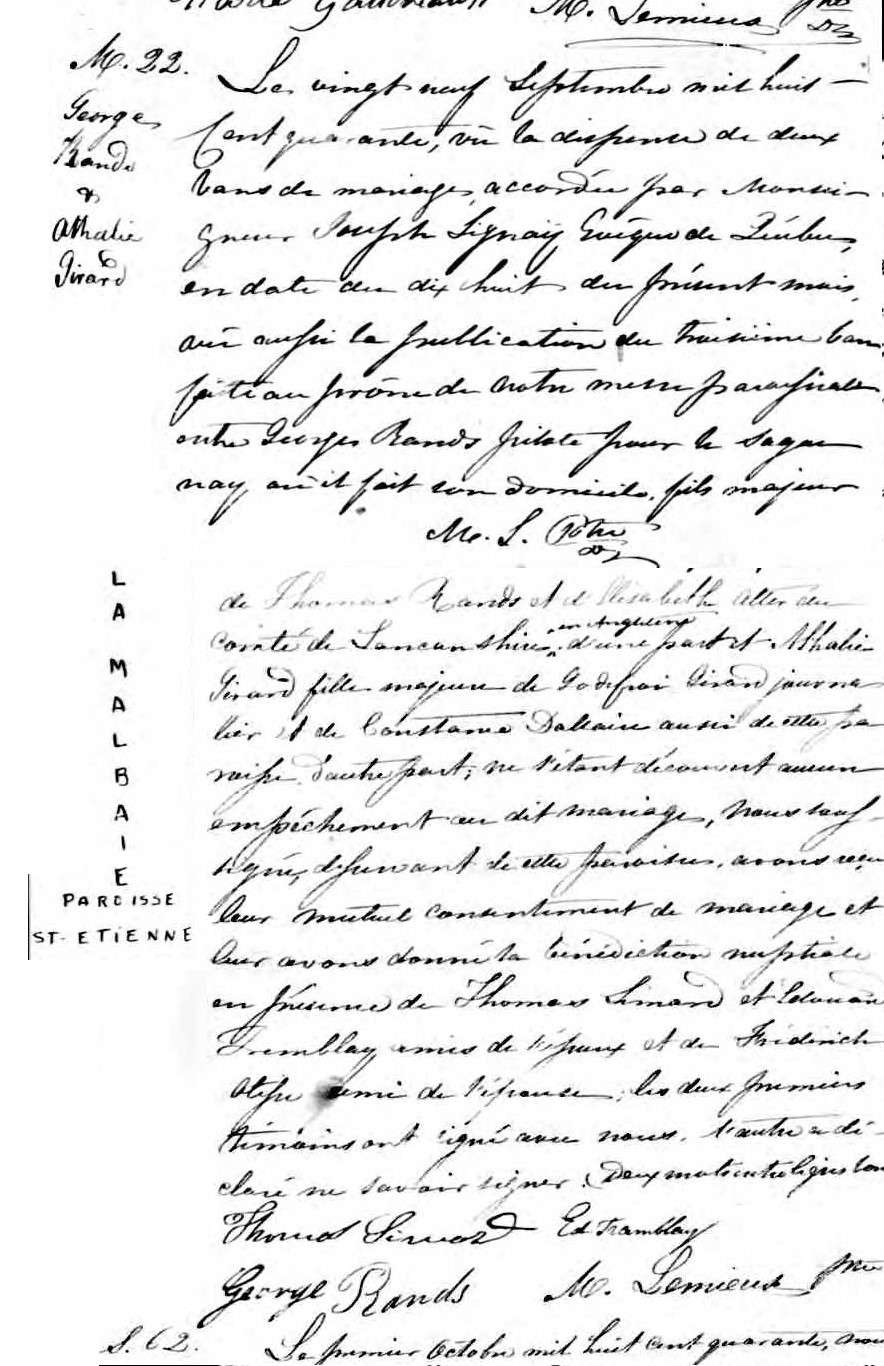 M. Lemieux Ptre
M. 22.
George
Rands
&
Athalie
Girard
Le vingt neuf Septembre mil huit
cent quarante, vu la dispense de deux
bans de mariage, accordée par Monsei-
gneur Joseph Signaÿ Evêque de Québec,
en date du dix huit du présent mois,
vû aussi la publication du troisième ban
faite au prône de notre messe paroissiale
entre Georges Rands pilote pour le Sague
nay, où il fait son domicile, fils majeur
M. L. Ptre
LA MALBAIE
PAROISSE
ST-ETIENNE
de Thomas Rands et d'Elisabeth Atter du
comté de Lancanshire, en Angleterre d'une part et Athalie
Girard fille majeure de Godefroi Girard journa
lier et de Constance Dallaire aussi de cette pa
roisse d'autre part; ne s'étant découvert aucun
empêchement au dit mariage, Nous sous-
signé, desservant de cette paroisse, avons reçu
leur mutuel consentement de mariage et
leur avons donné la bénédiction nuptiale
en présence de Thomas Simard et Edouard
Tremblay amis de l'époux et de Fréderick
ami de l'épouse, les deux premiers
témoins ont signé avec nous. l'autre a dé-
claré ne savoir signer. Deux mots entre lignes bon
Thomas Simard Ed Tramblay
George Rands M. Lemieux Ptre
S. 62. Le premier Octobre mil huit cent quarante, nous